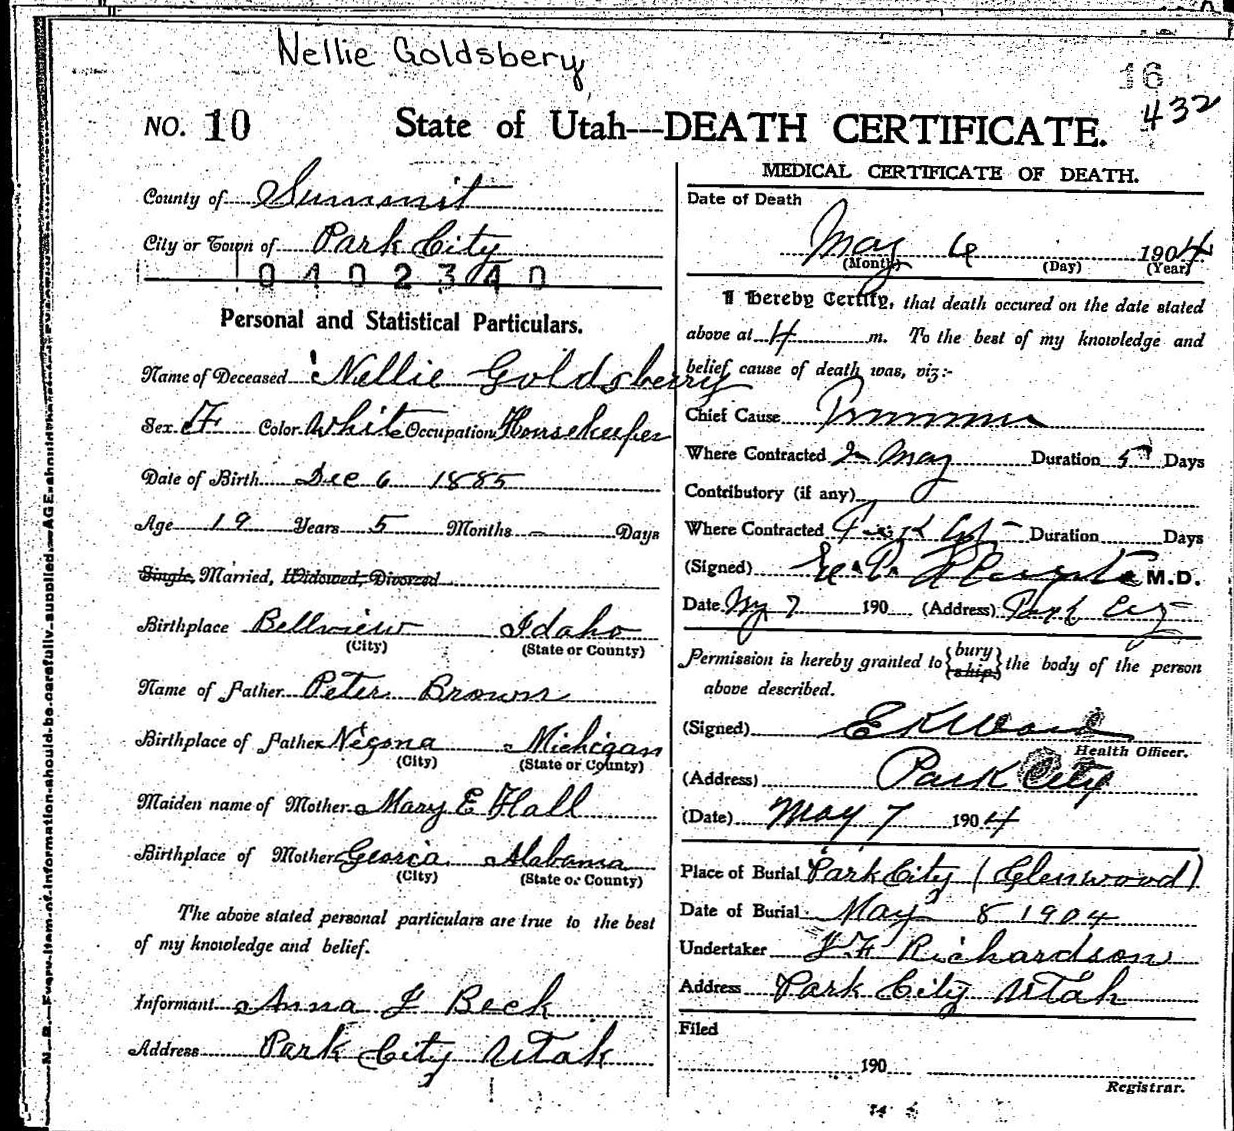 Nellie Goldsbery
16
432
NO. 10 State of Utah---DEATH CERTIFICATE.
County of Summit
City or Town of Park City
0402340
Personal and Statistical Particulars.
Name of Deceased Nellie Goldsberry
Sex F Color White Occupation Housekeeper
Date of Birth Dec 6 1885
Age 19 Years 5 Months - Days
Single, Married, Widowed, Divorced
Birthplace Bellview Idaho
(City) (State or County)
Name of Father Peter Brown
Birthplace of Father Negona Michigan
(City) (State or County)
Maiden name of Mother Mary E Hall
Birthplace of Mother Georgia Alabama
(City) (State or County)
The above stated personal particulars are true to the best
of my knowledge and belief.
Informant Anna J Beck
Address Park City Utah
N. B.—Every item of information should be carefully supplied. AGE should
MEDICAL CERTIFICATE OF DEATH.
Date of Death
May 6 1904
(Month) (Day) (Year)
I Hereby Certify, that death occured on the date stated
above at 4 m. To the best of my knowledge and
belief cause of death was, viz:-
Chief Cause
Where Contracted In May Duration 5 Days
Contributory (if any)
Where Contracted Duration Days
(Signed) M.D.
Date My 7 190 (Address) Park City
Permission is hereby granted to {bury ship} the body of the person
above described.
(Signed)
Health Officer.
(Address) Park City
(Date) May 7 1904
Place of Burial Park City (Glenwood)
Date of Burial May 8 1904
Undertaker Richardson
Address Park City Utah
Filed
190
Registrar.